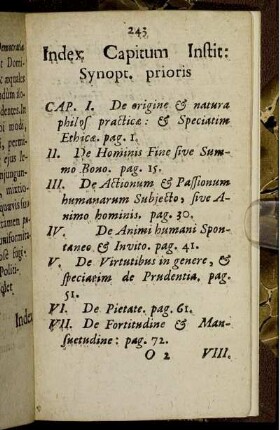 243
Index Capitum Instit:
Synopt. prioris
CAP. I. De origine & natura
philos practicæ: & Speciatim
Ethicæ. pag. 1.
II. De Hominis Fine sive Sum-
mo Bono. pag. 15.
III. De Actionum & Passionum
humanarum Subjecto, sive A-
nimo hominis. pag. 30.
IV. De Animi humani Spon-
taneo & Invito. pag. 41.
V. De Virtutibus in genere, &
speciatim de Prudentia. pag.
51.
VI. De Pietate. pag. 61.
VII. De Fortitudine & Man-
suetudine: pag. 72.
O 2 VIII.